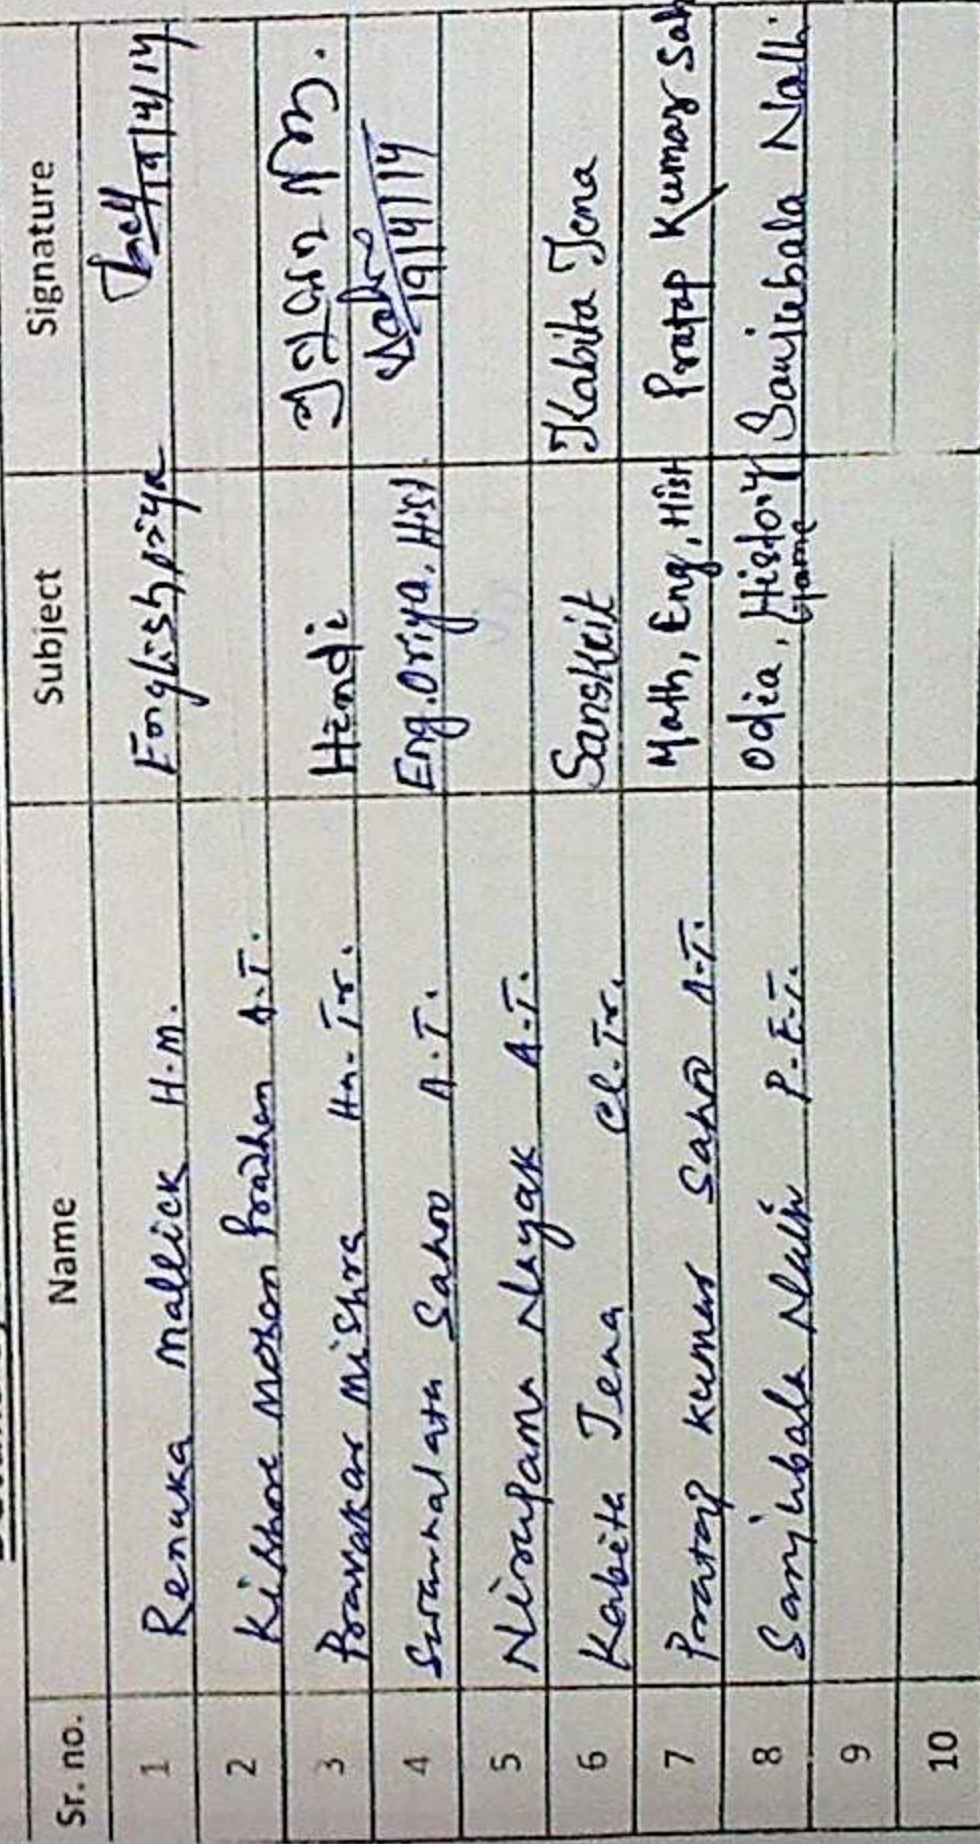 Sr. no. Name Subject Signature
1 Renuka Mallick H.M. English, 19/4/14
2 Kishore Mohan Pradhan A.T.
3 Pravakar Mishra Hn. Tr. Hindi
4 Swarnalata Sahoo A.T. Eng. Oriya, Hist Sahoo 19/4/14
5 Nirupama Nayak A.T.
6 Kabita Jena Cl. Tr. Sanskrit Kabita Jena
7 Pratap Kumar Sahoo A.T. Math, Eng, Hist Pratap Kumar Sah
8 Sanjubala Nath P.E.T. Odia, History Game Sanjubala Nath.
9
10